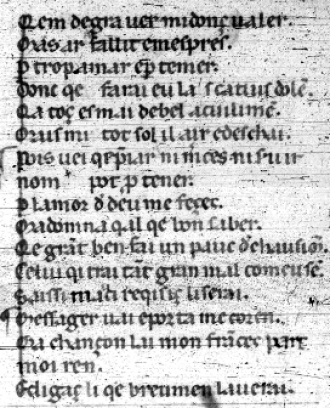 Qem degra uer midonç ualer.
Oras ar fallit e mespres.
P trop amar e p temer.
Donc qe farai eu las catius dolē.
Qa toç es mai de bel acuilimē.
Orus mi tot sol il air e deschai.
Pois uei qe p̄iar ni m̄ces ni seruir
nom pot p tener.
P lamor d deu me feçes.
Ma domna qal qe bon saber.
Qe grāt ben fai un pauc d chausimē.
Celui qi trai tāt gran mal com eu sē.
Saissi mari reqisiç li serai.
Messager uai e porta me coren.
Ma chançon lai mon frāces part
moi ren.
E digaç li qe breumen lauerai.